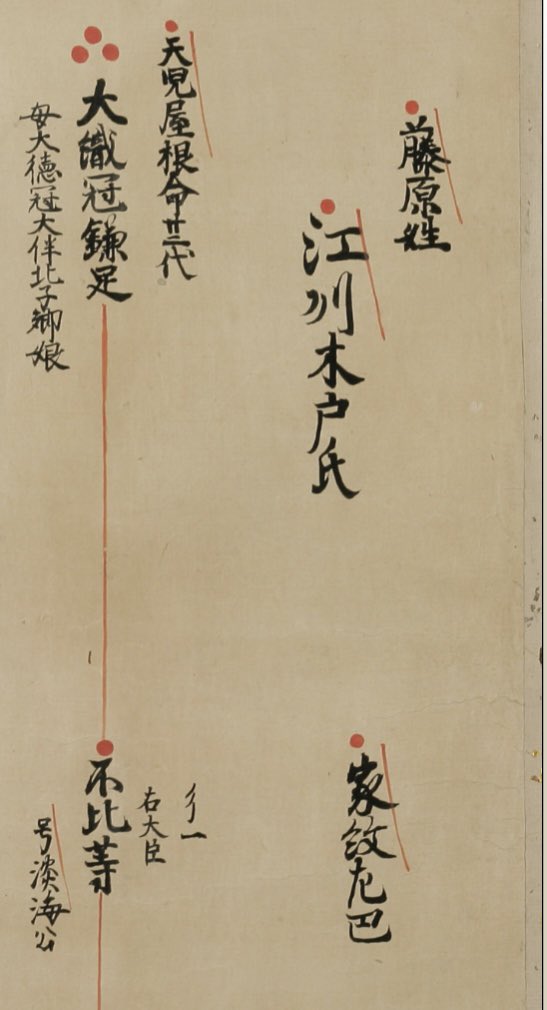 藤原姓
江州木戸氏
家紋左巴
天児屋根命廿三代
大織冠鎌足
母大徳冠大伴北子卿娘
右大臣
不比等
号淡海公